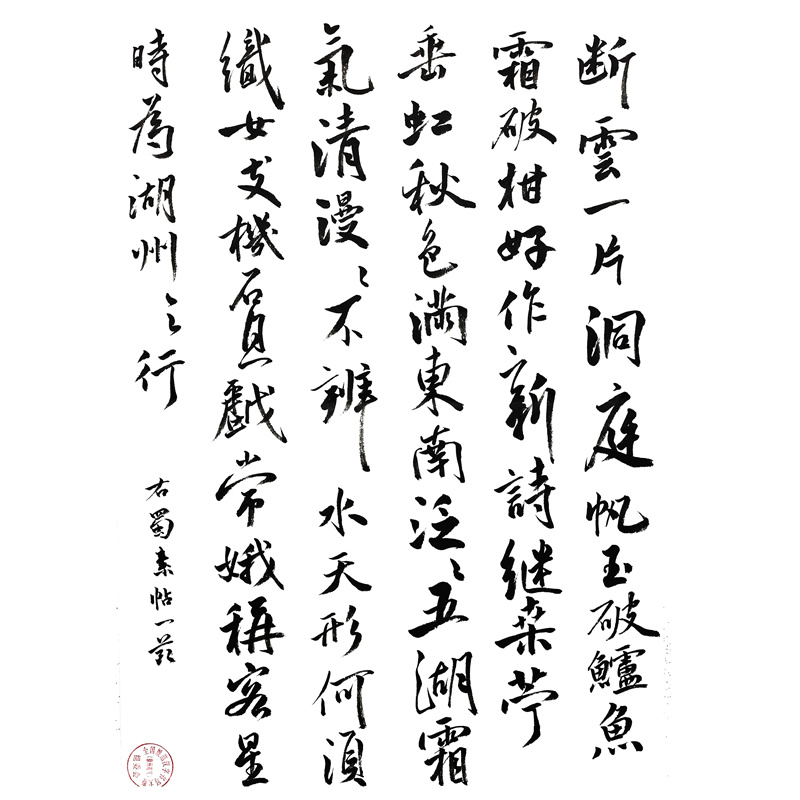 断雲一片洞庭帆玉破鱸魚
霜破柑好作新詩继桑苧
垂虹秋色滿東南泛〻五湖霜
氣清漫〻不辨水天形何須
織女支機石且戲常娥稱客星
時為湖州之行
右蜀素帖一